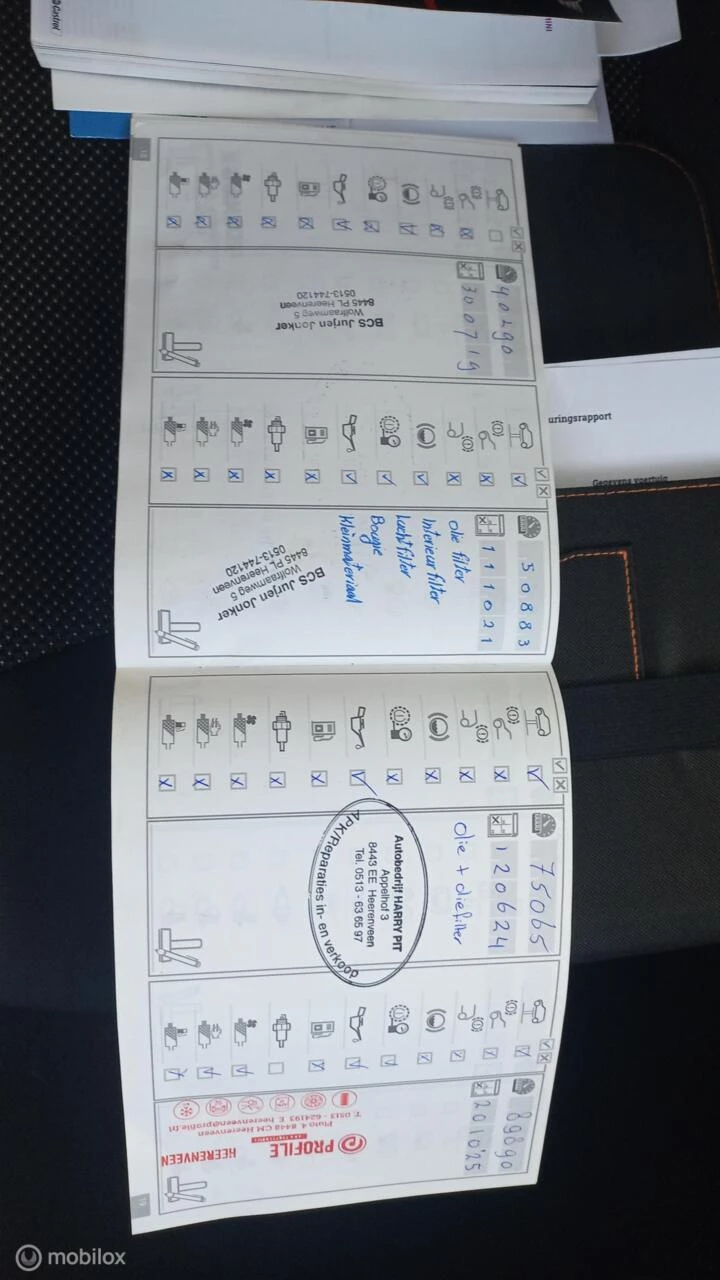 Castrol
MINI
uringsrapport
Gegevens voertuig
18
40290
300719
BCS Jurjen Jonker
Wolfraamweg 5
8445 PL Heerenveen
0513-744120
50883
111021
olie filter
Interieurfilter
Luchtfilter
Bougie
Kleinmateriaal
BCS Jurjen Jonker
Wolfraamweg 5
8445 PL Heerenveen
0513-744120
75065
120624
olie + oliefilter
Autobedrijf HARRY PIT
Appelhof 3
8443 EE Heerenveen
Tel. 0513 - 63 65 97
APK/Reparaties in- en verkoop
89890
201025
PROFILE
HEERENVEEN
Pluto 4, 8448 CM Heerenveen
T: 0513 - 624193 E heerenveen@profile.nl
19
mobilox